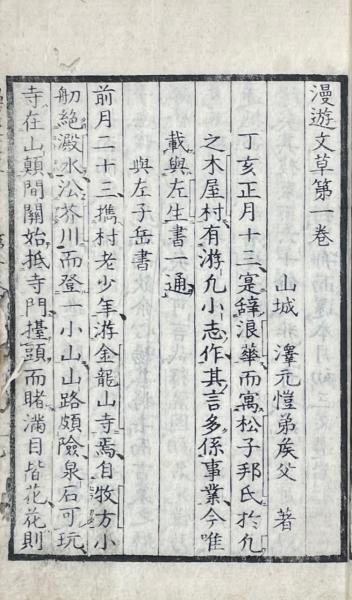 漫遊文草第一卷
山城 澤元愷弟矦父 著
丁亥正月十三寔辭浪華而寓松子邦氏於仇
之木屋村有游仇小志作其言多係事業今唯
載與左生書一通
與左子岳書
前月二十三携村老少年游金龍山寺焉自牧方小
舠絶澱水㳂芥川而登一小山山路頗險泉石可玩
寺在山顛間關始抵寺門擡頭而睹滿目皆花花則